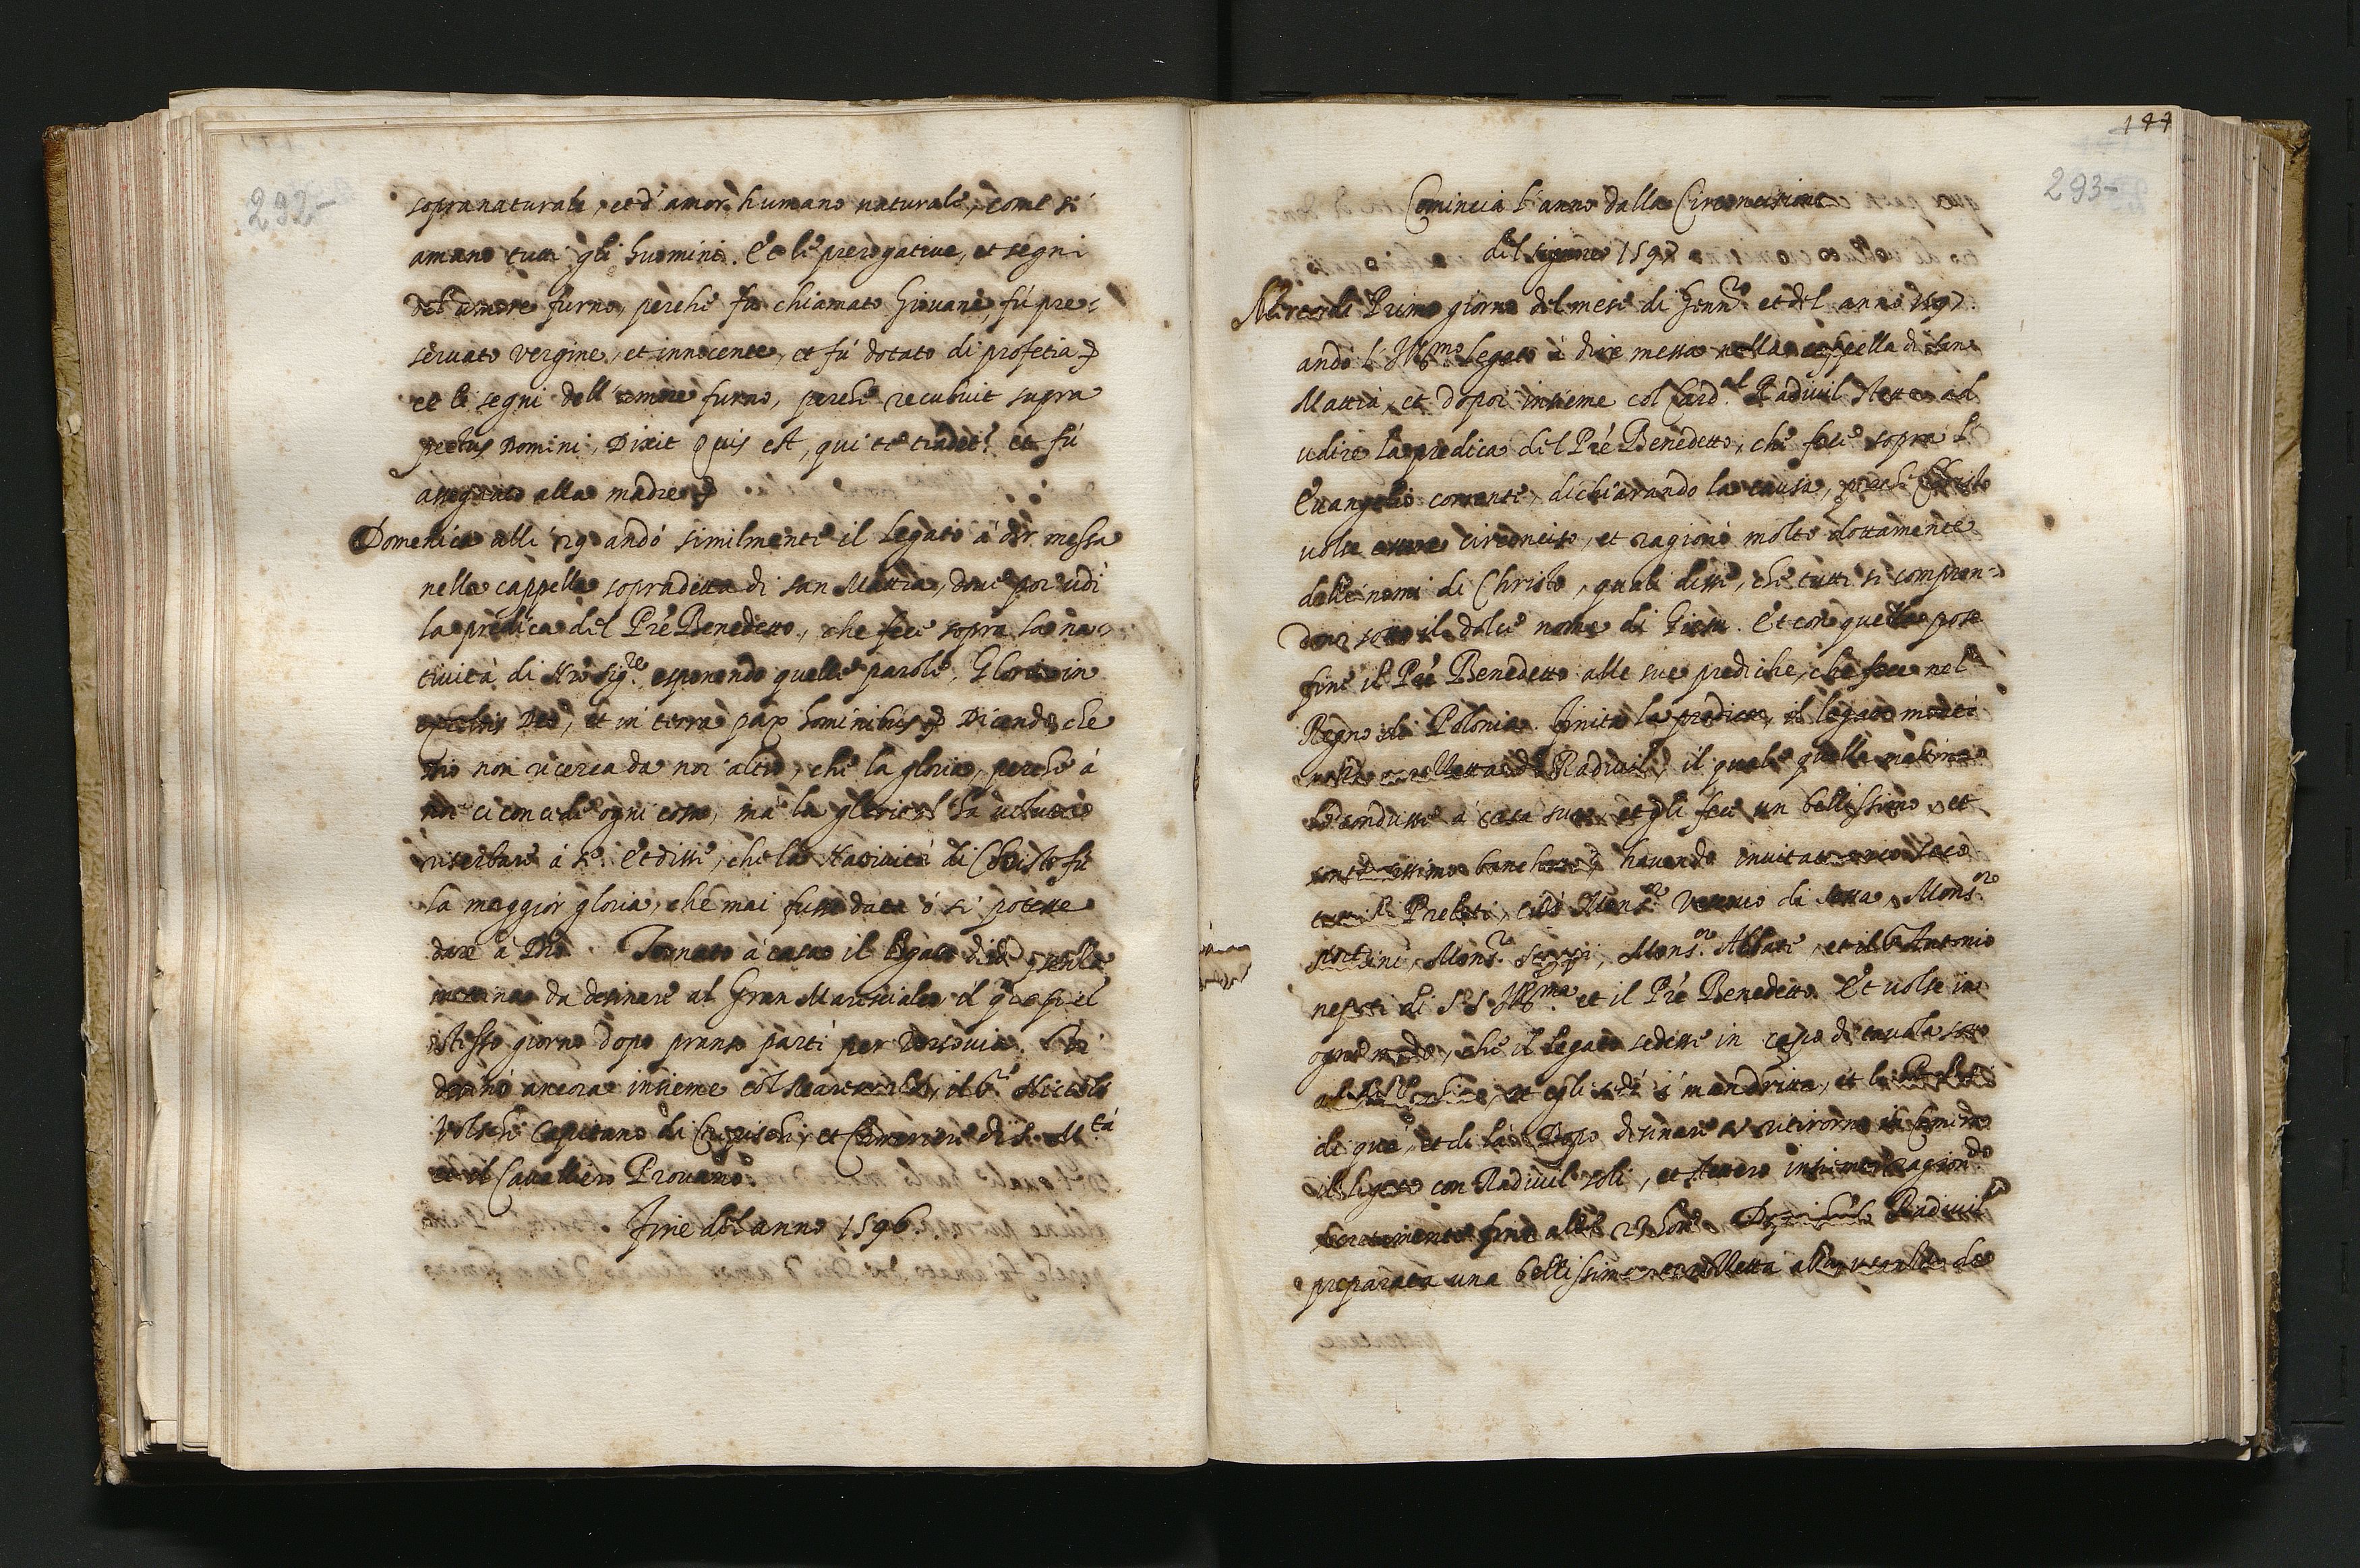 292-
sopranaturale, et d'amor humano naturale, come si
amano tutti gli huomini. Et le prerogative, et segni
del amore furno, perche fu chiamato Giovane, fú pre-
servato vergine, et innocente, et fú dotato di profetia
et li segni dell'amore furno, perche recubuit supra
pectus Domini, Dixit Quis est, qui te tradet? et fú
assegnato alla madre
Domenica alli 29 andó similmente il Legato á dir messa
nella cappella sopradetta di san Mattia, dove poi udí
la predica del Pré Benedetto, che fece sopra la na-
tivitá di Nrõ Sig.re esponendo quelle parole, Gloria in
excelsis Deo, et in terra pax hominibus Dicendo, che
Dio non ricerca da noi altro, che la gloria, perche á
noi ci concede ogni cosa, ma la gloria l'ha voluta
riserbare á se. Et disse, che la Nativitá di Christo fú
la maggior gloria, che mai fusse data ó si potesse
dare á Dio. Tornato á casa il Legato diede
mattina da desinare al Gran Maresciale, il
istesso giorno dopo pranso partí per Varsovia.
desinó ancora insieme col il Niccoló
Volschi Capitano di et Cameriere di S. M.tá
et il Cavalliero Provano.
Fine del anno 1596.
144
293-
Comincia l'anno dalla Circoncisione
del Signore 1597
Mercordi Primo giorno del mese di Genn.ro et del anno 1597.
andó l'Ill.mo Legato á dire messa nella cappella di San
Mattia, et dopoi insieme col Card.al Radivil stette ad
udire la predica del Pré Benedetto, che fece sopra l'
Evangelio corrente, dichiarando la causa, perche Christo
volse essere circonciso, et ragionó molto dottamente
delli nomi di Christo, quali disse, che tutti si compren-
dono sotto il dolce nome di Giesu. Et con quella pose
fine il Pré Benedetto alle sue prediche, che fece nel
Regno di Polonia. Finita la predica, il legato montó
nella carolletta di Radivil, il quale quella mattina
lo condusse á casa sua, et gli fece un bellissimo, et
banchetto, havendo invitato seco
Prelati, cioé Mons.re Vescovo di Mons.re
Mons.re Mons.re Abbate, et il Antonio
nepoti di S.S. Ill.ma et il Pré Benedetto. Et volse in
ogni modo, che il Legato sedesse in capo di tavola sotto
et egli sedé á mandritta, et li Prelati
di quá, et di lá. Dopo desinare si ritirorno in camera
il Legato con Radivil soli, et stettero insieme ragion.do
fino alle 23 hore. Radivil
preparata una bellissima carolletta